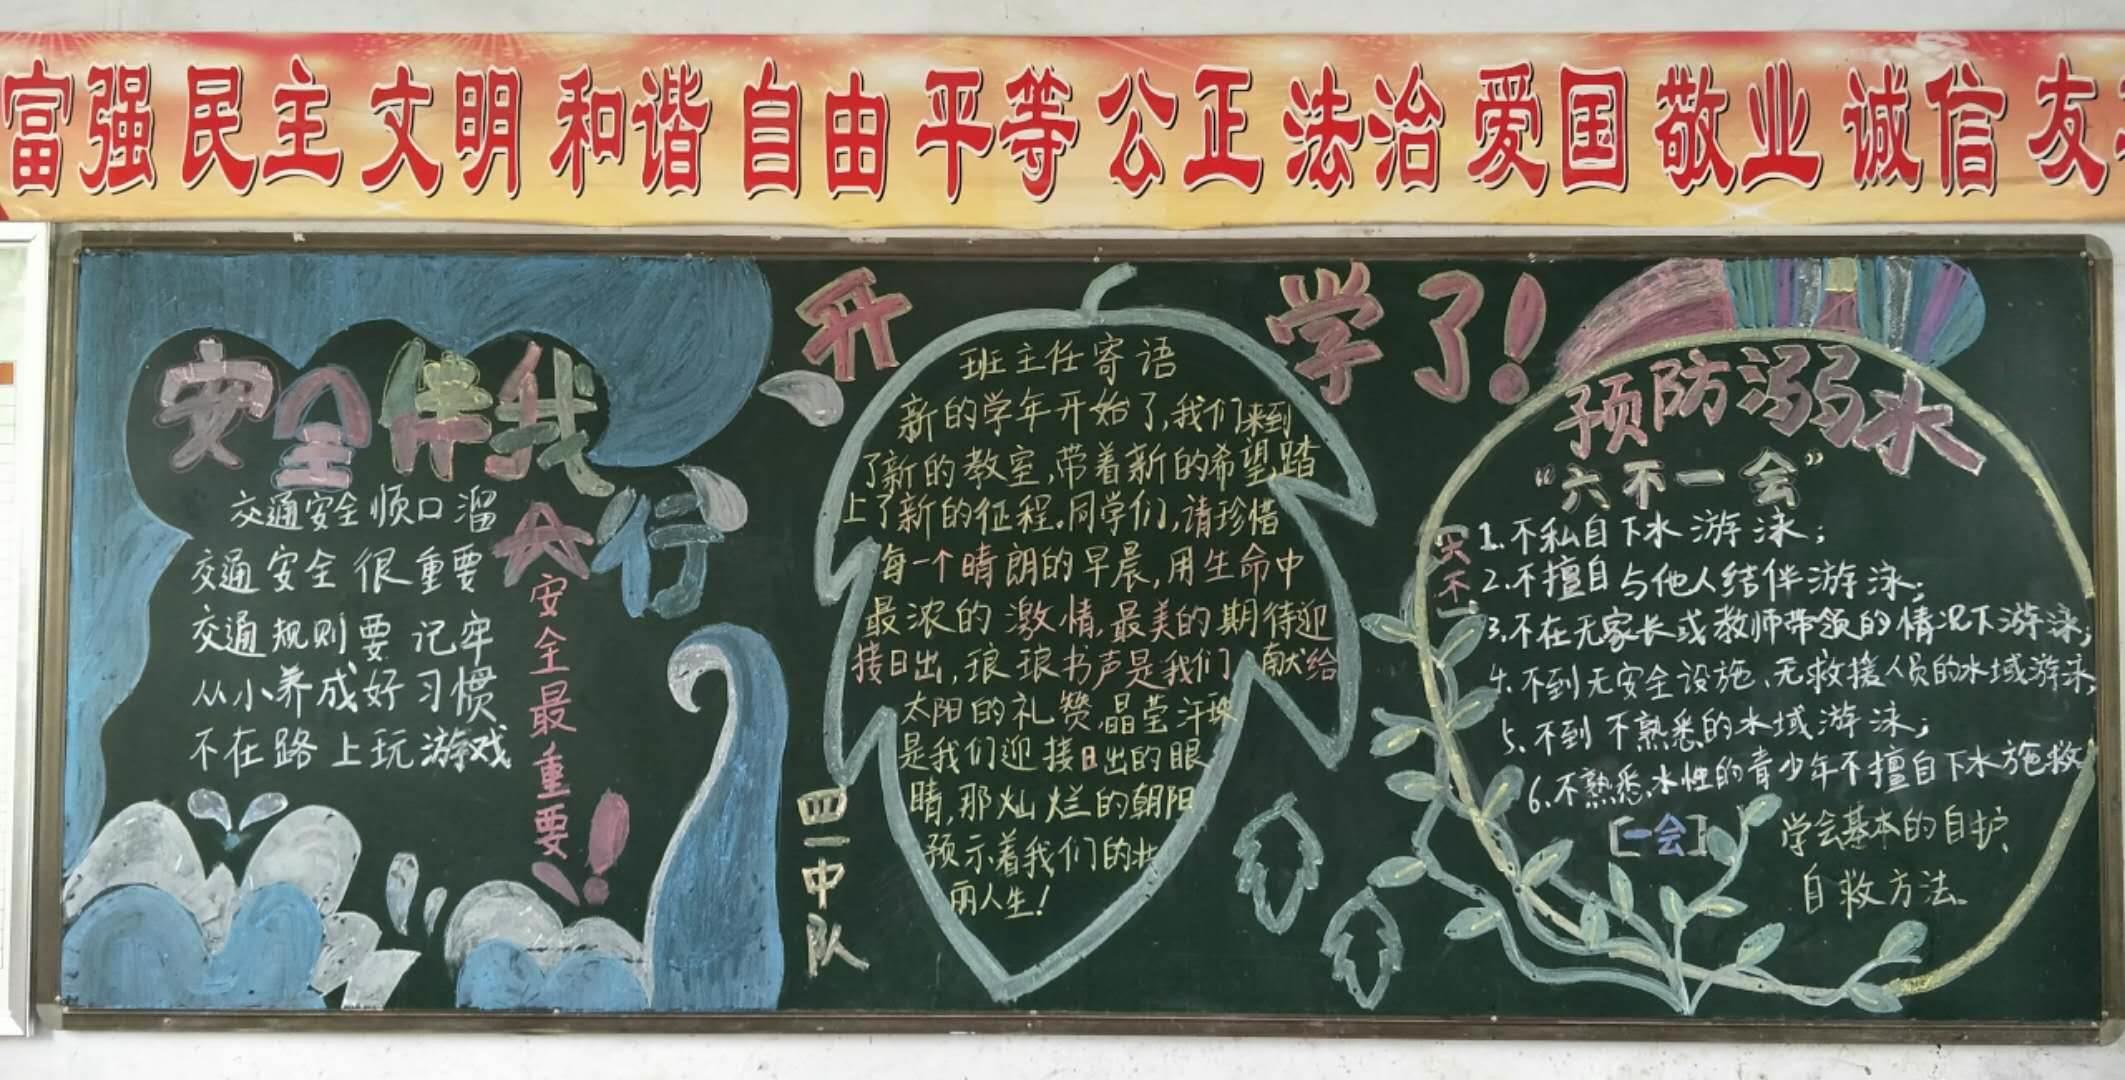 富强 民主 文明 和谐 自由 平等 公正 法治 爱国 敬业 诚信 友
开学了!
安全伴我
大行
交通安全顺口溜
交通安全很重要
交通规则要记牢
从小养成好习惯
不在路上玩游戏
安全最重要!
班主任寄语
新的学年开始了,我们来到
了新的教室,带着新的希望,踏
上了新的征程。同学们,请珍惜
每一个晴朗的早晨,用生命中
最浓的激情,最美的期待迎
接日出,琅琅书声是我们献给
太阳的礼赞,晶莹汗珠
是我们迎接日出的眼
睛,那灿烂的朝阳
预示着我们的壮
丽人生!
四一中队
预防溺水
“六不一会”
[六不]
1.不私自下水游泳;
2.不擅自与他人结伴游泳;
3.不在无家长或教师带领的情况下游泳;
4.不到无安全设施、无救援人员的水域游泳;
5.不到不熟悉的水域游泳;
6.不熟悉水性的青少年不擅自下水施救
[一会]
学会基本的自护、
自救方法。